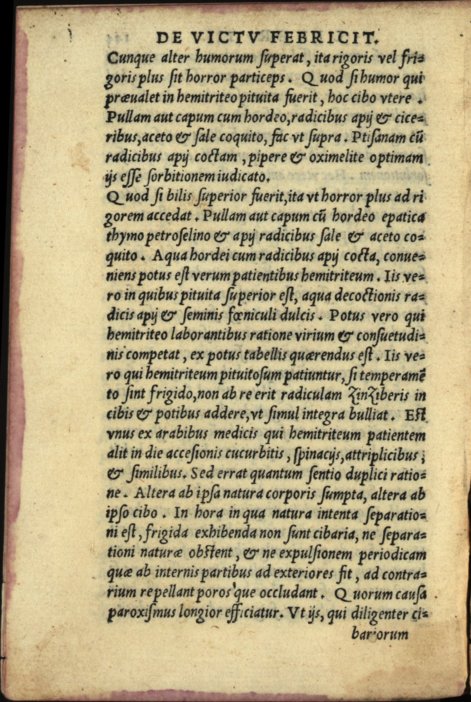 DE VICTV FEBRICIT.
Cunque alter humorum superat, ita rigoris vel fri=
goris plus sit horror particeps. Quod si humor qui
præualet in hemitriteo pituita fuerit, hoc cibo vtere.
Pullam aut capum cum hordeo, radicibus apij & cice=
ribus, aceto & sale coquito, fac vt supra. Ptisanam cũ
radicibus apij coctam, pipere & oximelite optimam
ijs esse sorbitionem iudicato.
Quod si bilis superior fuerit, ita vt horror plus ad ri
gorem accedat. Pullam aut capum cũ hordeo epatica
thymo petroselino & apij radicibus sale & aceto co=
quito. Aqua hordei cum radicibus apij cocta, conue=
niens potus est verum patientibus hemitriteum. Iis ve=
ro in quibus pituita superior est, aqua decoctionis ra=
dicis apij & seminis fœniculi dulcis. Potus vero qui
hemitriteo laborantibus ratione virium & consuetudi=
nis competat, ex potus tabellis quærendus est. Iis ve=
ro qui hemitriteum pituitosum patiuntur, si temperamẽ
to sint frigido, non ab re erit radiculam Zinziberis in
cibis & potibus addere, vt simul integra bulliat. Est
vnus ex arabibus medicis qui hemitriteum patientem
alit in die accesionis cucurbitis, spinacijs, attriplicibus;
& similibus. Sed errat quantum sentio duplici ratio=
ne. Altera ab ipsa natura corporis sumpta, altera ab
ipso cibo. In hora in qua natura intenta separatio=
ni est, frigida exhibenda non sunt cibaria, ne separa=
tioni naturæ obstent, & ne expulsionem periodicam
quæ ab internis partibus ad exteriores fit, ad contra=
rium repellant poros'que occludant. Quorum causa
paroxismus longior efficiatur. Vt ijs, qui diligenter ci=
bariorum